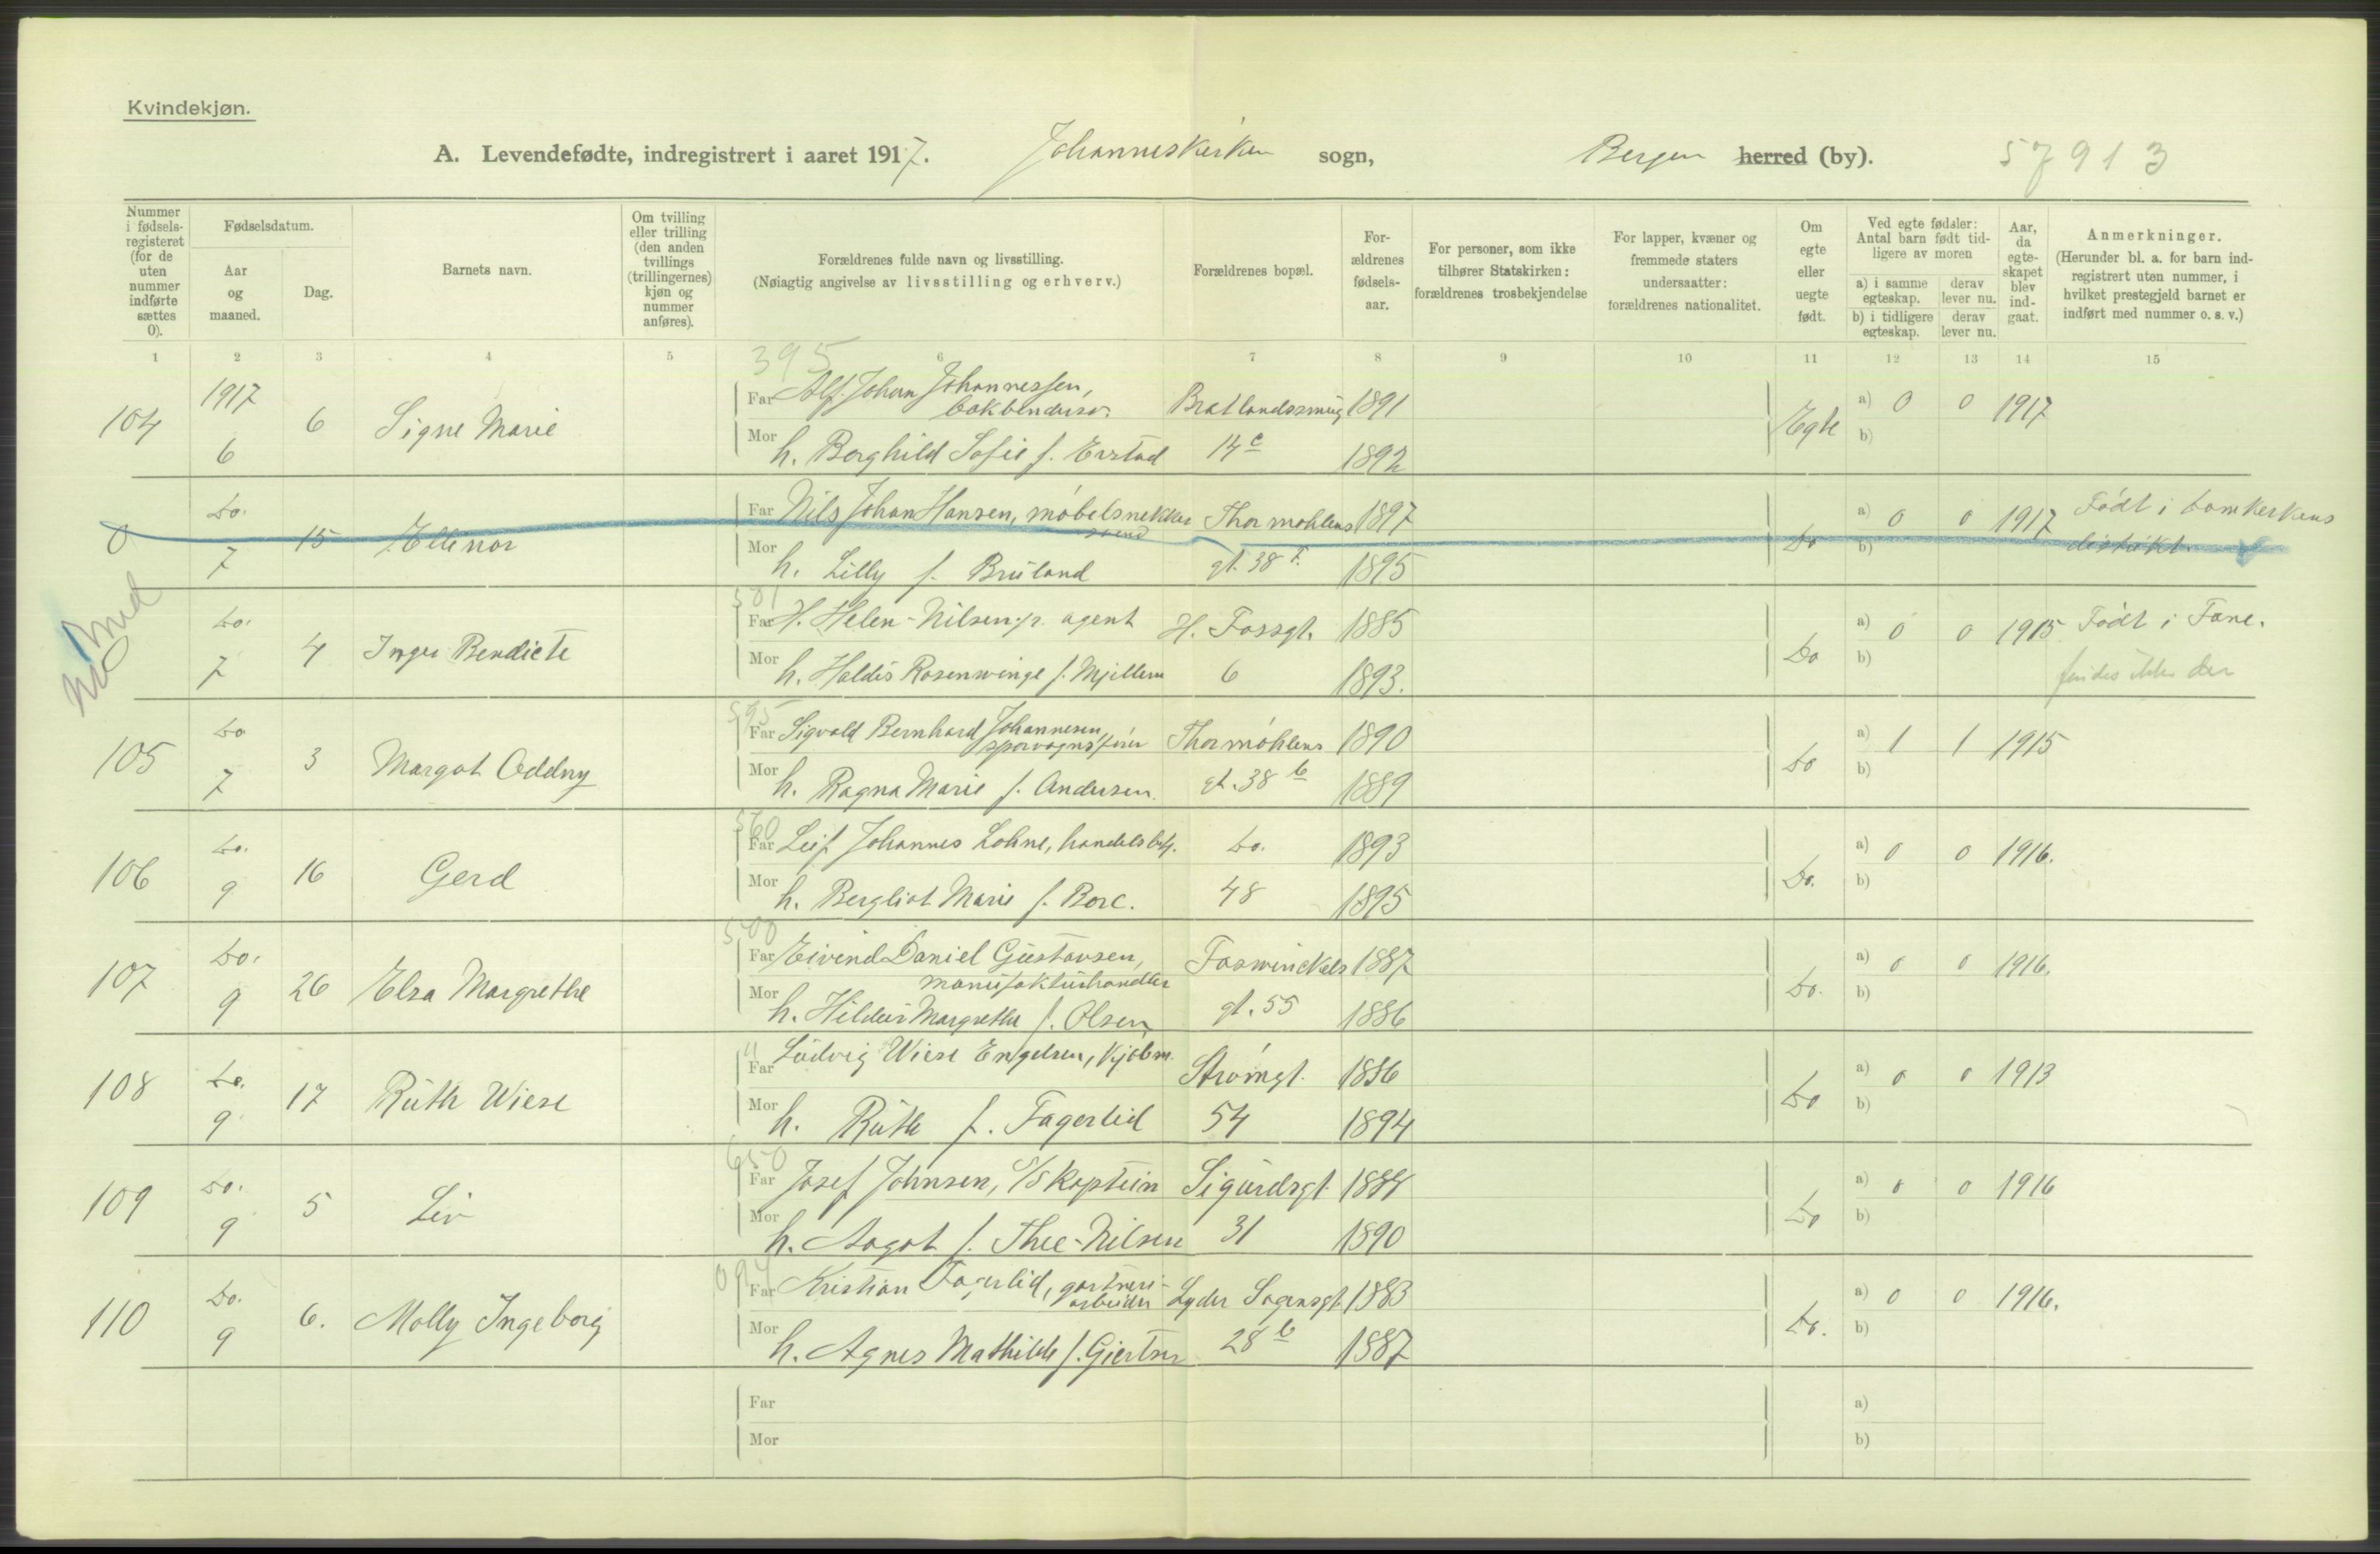 Kvindekjøn.
A. Levendefødte, indregistrert i aaret 1917. Johanneskirken sogn, Bergen herred (by). 57913
Nummer i fødsels-registeret (for de uten nummer indførte sættes 0).
Fødselsdatum.
Aar og maaned.
Dag.
Barnets navn.
Om tvilling eller trilling (den anden tvillings (trillingernes) kjøn og nummer anføres).
Forældrenes fulde navn og livsstilling.
(Nøiagtig angivelse av livsstilling og erhverv.)
Forældrenes bopæl.
For-ældrenes fødsels-aar.
For personer, som ikke tilhører Statskirken: forældrenes trosbekjendelse
For lapper, kvæner og fremmede staters undersaatter: forældrenes nationalitet.
Om egte eller uegte født.
Ved egte fødsler: Antal barn født tid-ligere av moren
a) i samme egteskap. derav lever nu.
b) i tidligere egteskap. derav lever nu.
Aar, da egte-skapet blev ind-gaat.
Anmerkninger.
(Herunder bl. a. for barn ind-registrert uten nummer, i hvilket prestegjeld barnet er indført med nummer o. s. v.)
1 2 3 4 5 6 7 8 9 10 11 12 13 14 15
395
104 1917 6 Signe Marie Far Alf Johan Johannessen, Bratlandssmug 1891 Egte a) 0 0 1917
bokbindersv.
6 Mor h. Borghild Sofie f. Erstad 14c 1892 b)
0 Do. 15 Ellinor Far Nils Johan Hansen, møbelsnekker Thormøhlens 1897 Do a) 0 0 1917 Født i Domkirkens
svend
7 Mor h. Lilly f. Bruland gt. 38 1895 b) distrikt.
501
Do. 4 Inger Bendicte Far H. Helen-Nilsen jr. agent H. Fossgt. 1885 Do a) 0 0 1915 Født i Fane.
7 Mor h. Haldis Rosenwinge f. Mjillem 6 1893. b) findes ikke der
595
105 Do 3 Margot Oddny Far Sigvald Bernhard Johannesen, Thormøhlens 1890 Do a) 1 1 1915
sporvognsfører
7 Mor h. Ragna Marie f. Andersen. gt. 38 b 1889 b)
560
106 Do. 16 Gerd Far Leif Johannes Lohne, handelsbetj. Do. 1893 Do. a) 0 0 1916.
9 Mor h. Bergliot Marie f. Borc. 48 1895 b)
500
107 Do. 26 Elsa Margrethe Far Eivind Daniel Gustavsen, Foswinckels 1887 Do. a) 0 0 1916.
manufakturhandler
9 Mor h. Hildur Margrethe f. Olsen gt. 55 1886 b)
108 Do. 17 Ruth Wiese Far Ludvig Wiese Engelsen, kjøbm. Strømgt. 1886 Do a) 0 0 1913
9 Mor h. Ruth f. Fagerlid 54 1894 b)
650
109 Do. 5 Liv Far Josef Johnsen, S/S kaptein Sigurdsgt. 1888 Do a) 0 0 1916
9 Mor h. Aagot f. Thee-Nilsen 31 1890 b)
110 Do. 6. Molly Ingeborg Far Kristian Fagerlid, gartneri- Lyder Sagensgt. 1883 Do. a) 0 0 1916.
arbeider
9 Mor h. Agnes Mathilde f. Giertsen 28 b 1887 b)
Far a)
Mor b)